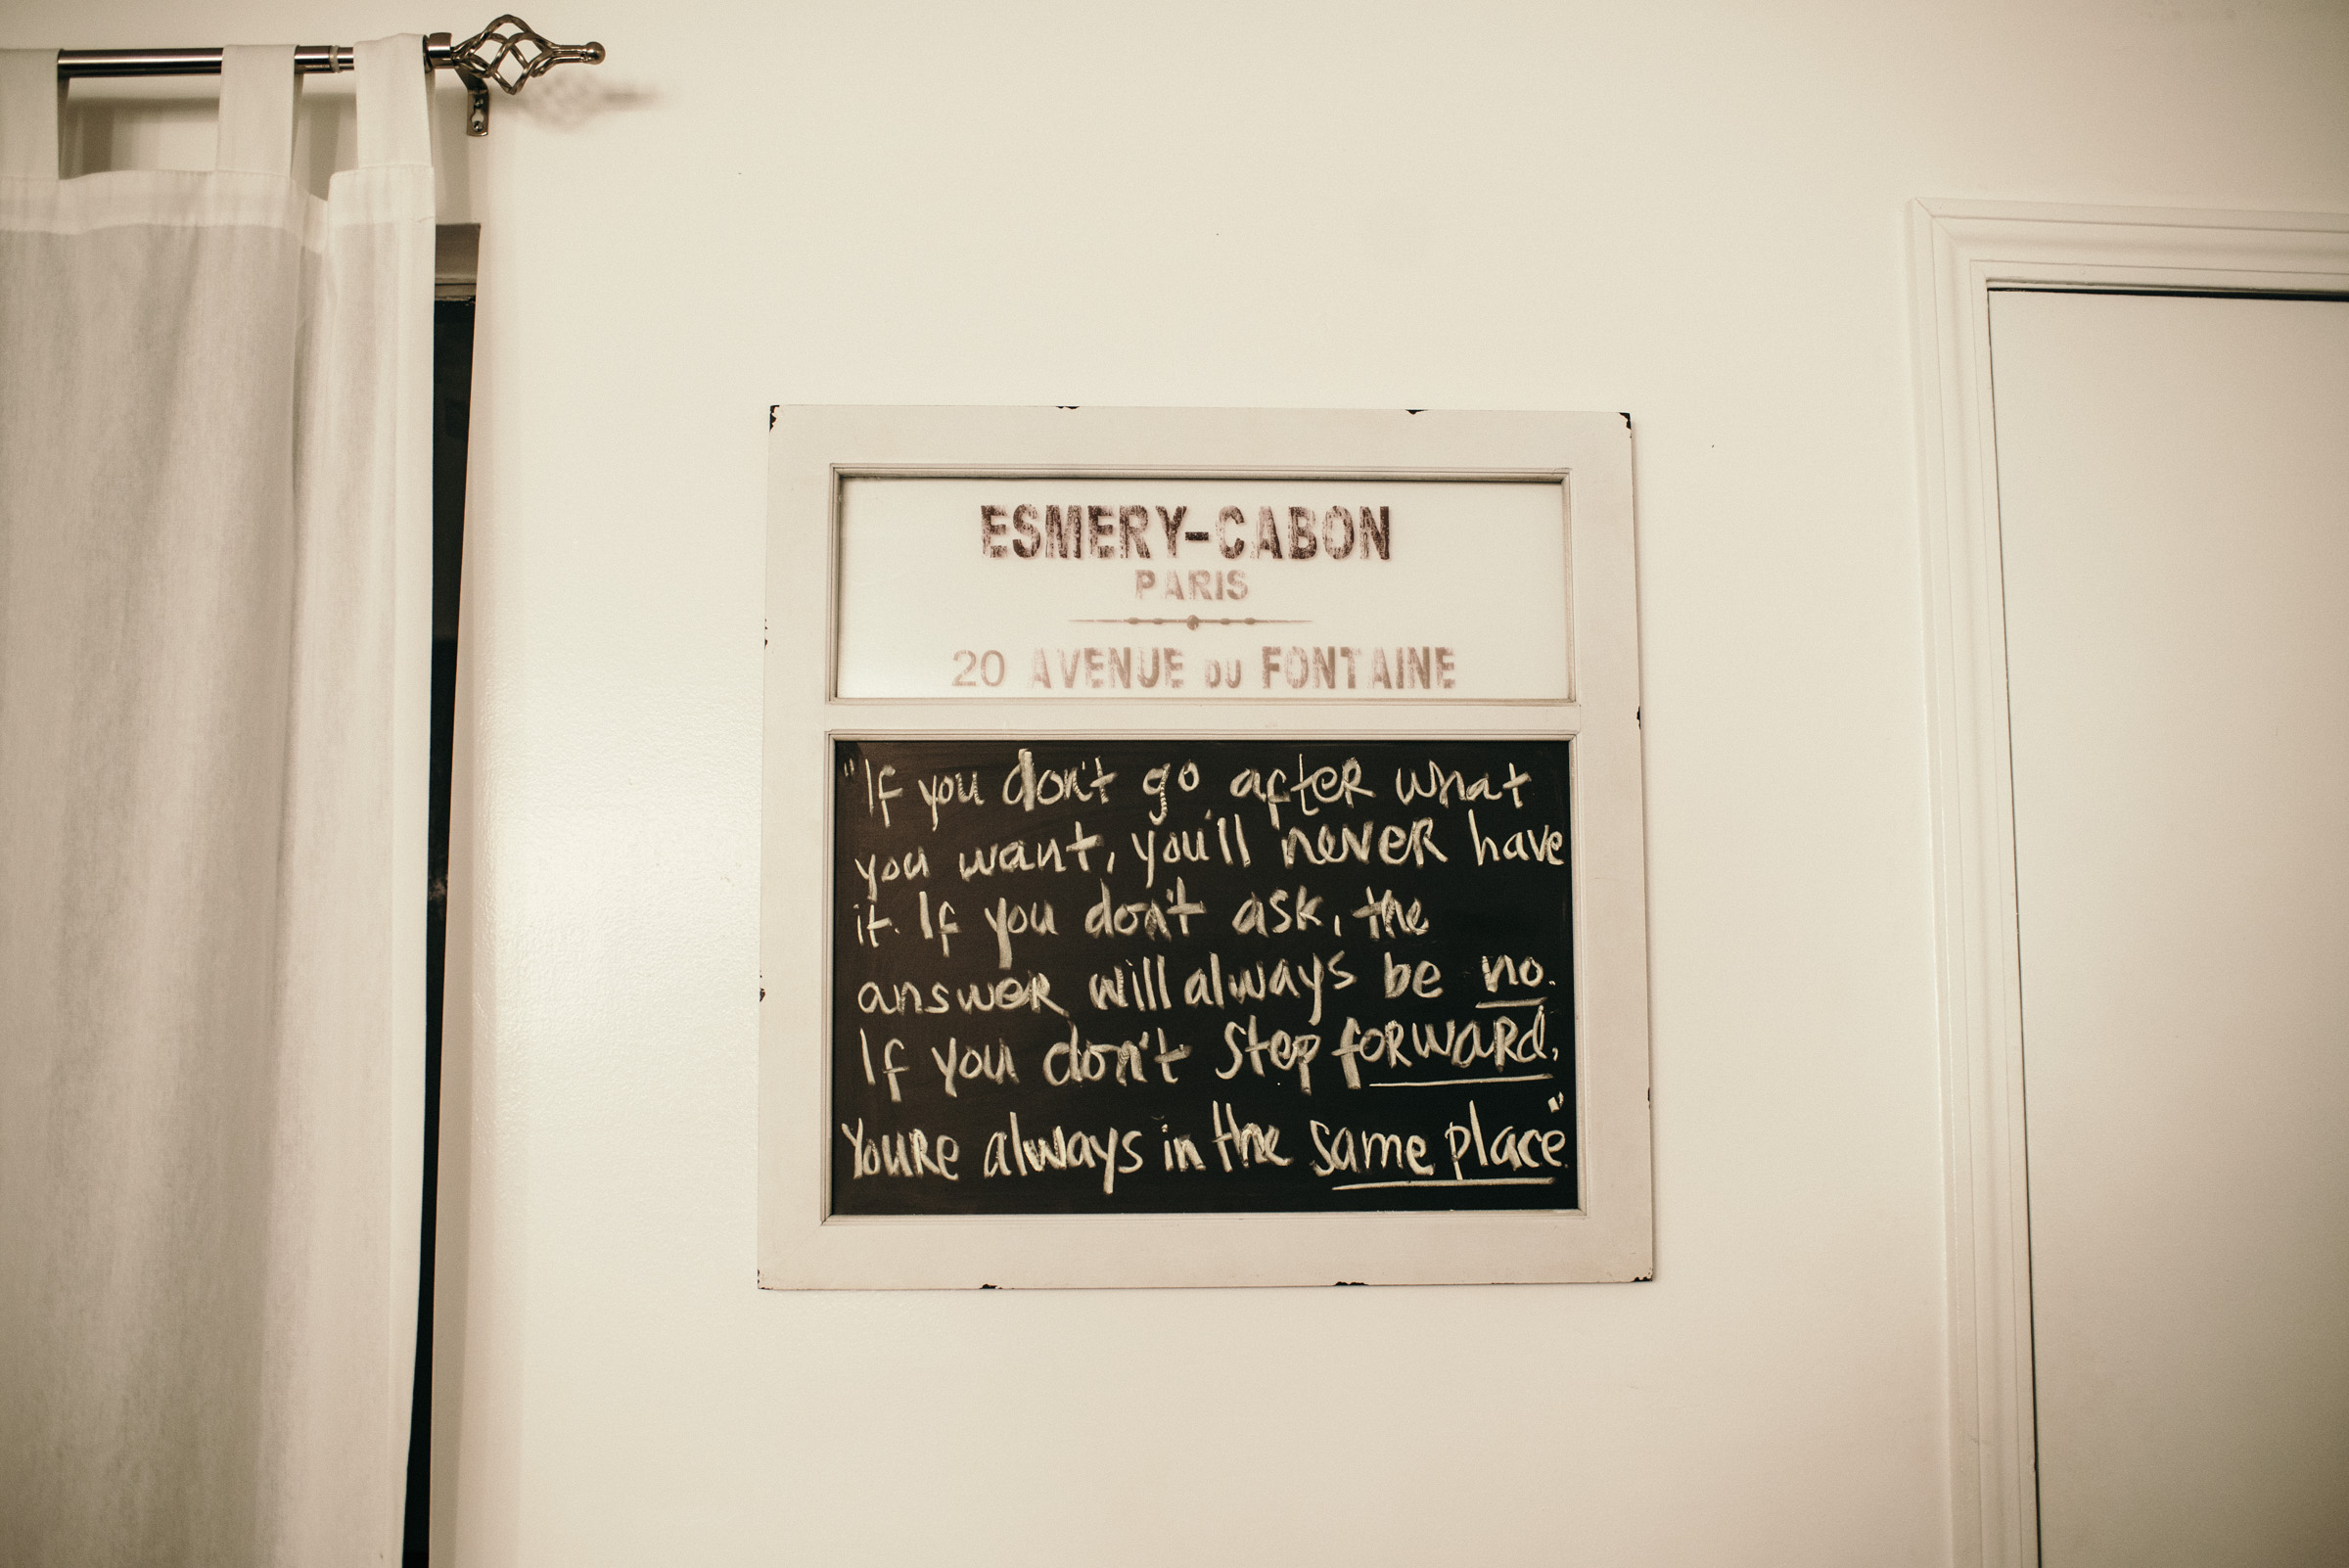 ESMERY-CABON
PARIS
20 AVENUE DU FONTAINE
"If you don't go after what
you want, you'll never have
it. If you don't ask, the
answer will always be no.
If you don't step forward,
Youre always in the same place."